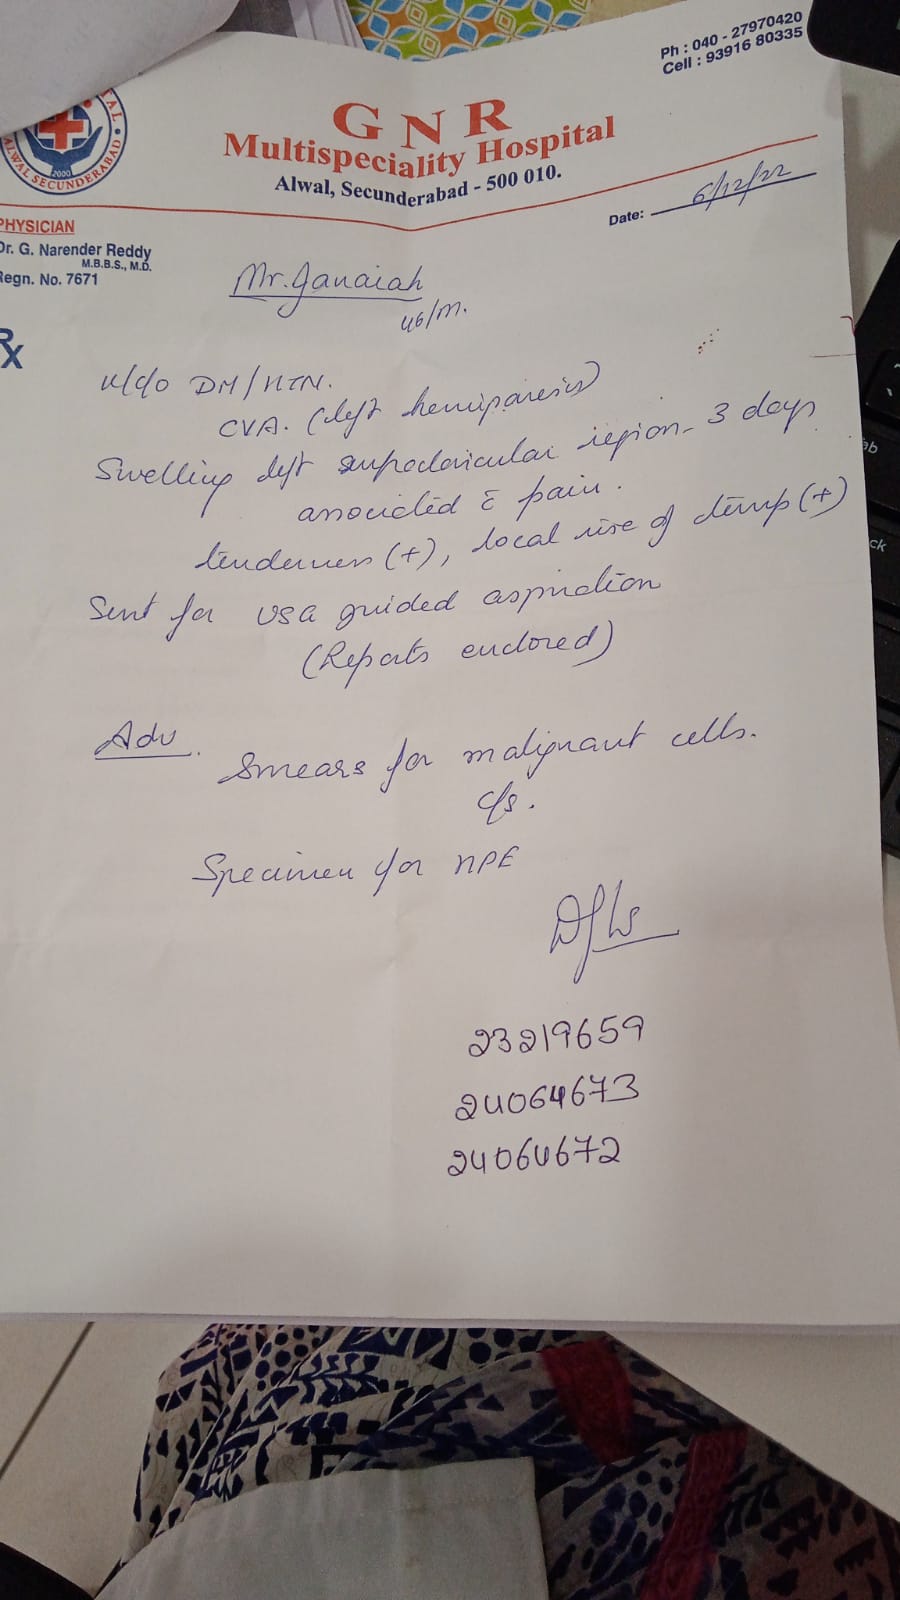 Ph : 040 - 27970420
Cell : 93916 80335
GNR
Multispeciality Hospital
Alwal, Secunderabad - 500 010.
ALWAL SECUNDERABAD
2000
Date: 6/12/22
PHYSICIAN
Dr. G. Narender Reddy
M.B.B.S., M.D.
Regn. No. 7671
Mr. Janaiah
46/M.
Rx
K/c/o DM/HTN.
CVA. (left hemiparesis)
Swelling left supraclavicular region - 3 days
associated c̄ pain.
tenderness (+), local rise of temp (+)
Sent for USG guided aspiration
(Reports enclosed)
Adv.
Smears for malignant cells.
c/s.
Specimen for HPE
23219659
24064673
24064672